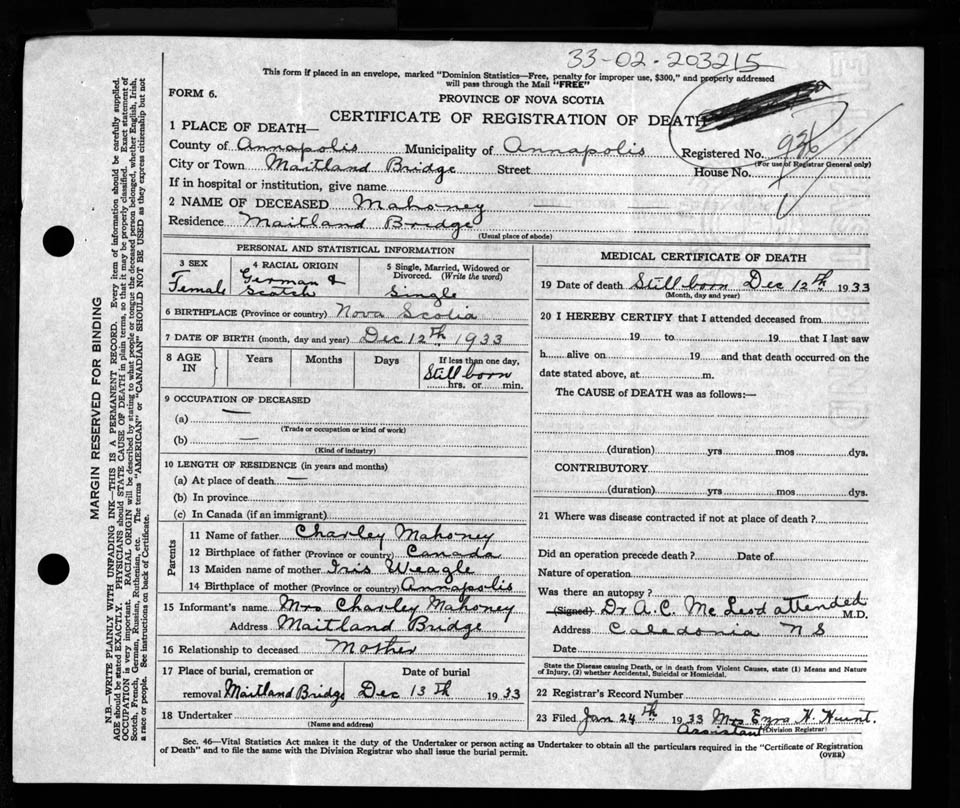 33-02-203215
This form if placed in an envelope, marked "Dominion Statistics—Free, penalty for improper use, $300," and properly addressed
will pass through the Mail "FREE"
FORM 6.
PROVINCE OF NOVA SCOTIA
CERTIFICATE OF REGISTRATION OF DEATH
1 PLACE OF DEATH—
County of Annapolis Municipality of Annapolis Registered No. 936
(For use of Registrar General only)
City or Town Maitland Bridge Street House No.
If in hospital or institution, give name
2 NAME OF DECEASED Mahoney
Residence Maitland Bridge
(Usual place of abode)
PERSONAL AND STATISTICAL INFORMATION
3 SEX Female
4 RACIAL ORIGIN German & Scotch
5 Single, Married, Widowed or Divorced. (Write the word) Single
6 BIRTHPLACE (Province or country) Nova Scotia
7 DATE OF BIRTH (month, day and year) Dec 12th 1933
8 AGE IN Years Months Days If less than one day, Still born hrs. or min.
9 OCCUPATION OF DECEASED
(a) —
(Trade or occupation or kind of work)
(b) —
(Kind of industry)
10 LENGTH OF RESIDENCE (in years and months)
(a) At place of death —
(b) In province
(c) In Canada (if an immigrant)
Parents
11 Name of father Charley Mahoney
12 Birthplace of father (Province or country) Canada
13 Maiden name of mother Iris Weagle
14 Birthplace of mother (Province or country) Annapolis
15 Informant's name Mrs Charley Mahoney
Address Maitland Bridge
16 Relationship to deceased Mother
17 Place of burial, cremation or Date of burial
removal Maitland Bridge Dec 13th 1933
18 Undertaker
(Name and address)
MEDICAL CERTIFICATE OF DEATH
19 Date of death Still born Dec 12th 1933
(Month, day and year)
20 I HEREBY CERTIFY that I attended deceased from
19 to 19 that I last saw
h alive on 19 and that death occurred on the
date stated above, at m.
The CAUSE of DEATH was as follows:—
(duration) yrs mos dys.
CONTRIBUTORY
(duration) yrs mos dys.
21 Where was disease contracted if not at place of death?
Did an operation precede death? Date of
Nature of operation
Was there an autopsy?
(Signed) Dr A. C. Mc Leod attended M.D.
Address Caledonia N S
Date
State the Disease causing Death, or in death from Violent Causes, state (1) Means and Nature
of Injury, (2) whether Accidental, Suicidal or Homicidal.
22 Registrar's Record Number
23 Filed Jan 24th 1933 Mrs Ezra H. Hunt.
Assistant (Division Registrar)
Sec. 46—Vital Statistics Act makes it the duty of the Undertaker or person acting as Undertaker to obtain all the particulars required in the "Certificate of Registration
of Death" and to file the same with the Division Registrar who shall issue the burial permit.
(OVER)
MARGIN RESERVED FOR BINDING
N.B.—WRITE PLAINLY WITH UNFADING INK—THIS IS A PERMANENT RECORD. Every item of information should be carefully supplied.
AGE should be stated EXACTLY. PHYSICIANS should STATE CAUSE OF DEATH in plain terms, so that it may be properly classified. Exact statement of
OCCUPATION is very important. RACIAL ORIGIN will be described by stating to what people or tongue the deceased person belonged, whether English, Irish,
Scotch, French, German, Russian, Ruthenian, etc. The terms "AMERICAN" or "CANADIAN" SHOULD NOT BE USED as they express citizenship but not
a race or people. See instructions on back of Certificate.